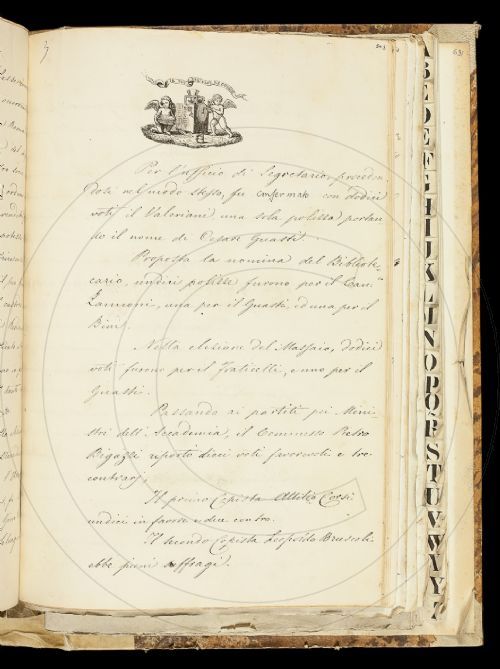 Per l'ufficio di Segretario, proceden-
dosi nel modo stesso, fu confermato con dodici
voti il Valeriani una sola polizza portan-
do il nome di Cesare Guasti.
Proposta la nomina del Bibliote-
cario, undici polizze furono per il Can.
Zannoni, una per il Guasti, ed una per il
Bini.
Nella elezione del Massaio, dodici
voti furono per il Fraticelli, e uno per il
Guasti.
Passando ai partiti pei Mini-
stri dell'Accademia, il Commesso Pietro
Bigazzi riportò dieci voti favorevoli e tre
contrarj;
Il primo Copista Attilio Corsi
undici in favore e due contro.
Il secondo Copista Leopoldo Bruscoli
ebbe pieni suffragi.
A
B
E
D
E
F
G
H
I
J
K
L
N
O
P
Q
R
S
T
U
V
W
Y
Z